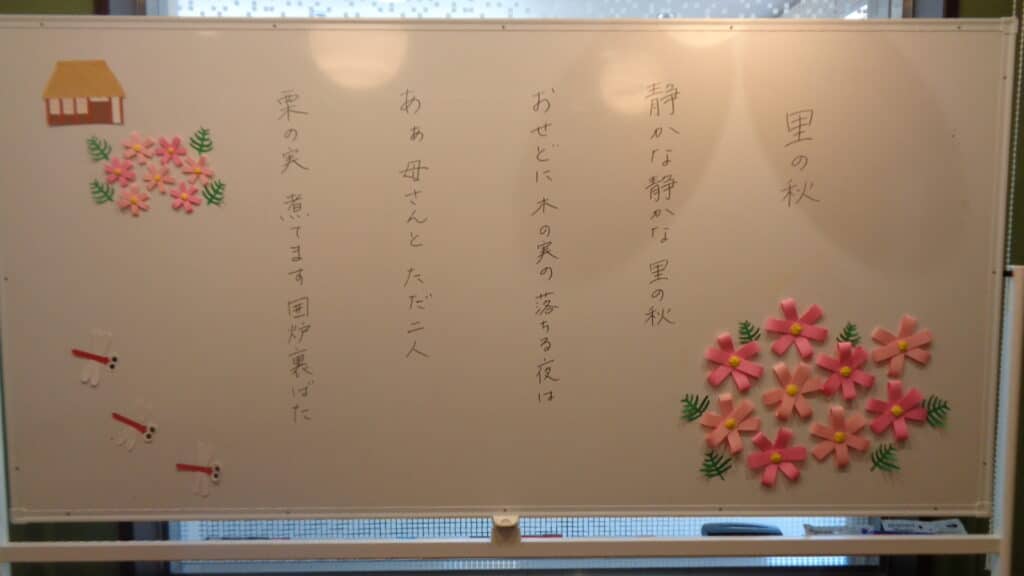 里の秋
静かな静かな 里の秋
おせどに 木の実の 落ちる夜は
あぁ 母さんと ただ二人
栗の実 煮てます 囲炉裏ばた